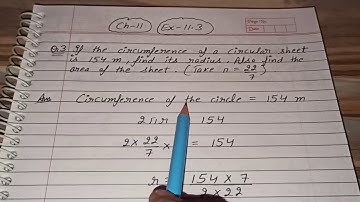 Ch-11 Ex-11.3
Q.3 If the circumference of a circular sheet
is 154 m, find its radius. Also find the
area of the sheet. (Take π = 22/7)
Ans Circumference of the circle = 154 m
2πr 154
2 × 22/7 × = 154
r = 154 × 7
2 × 22